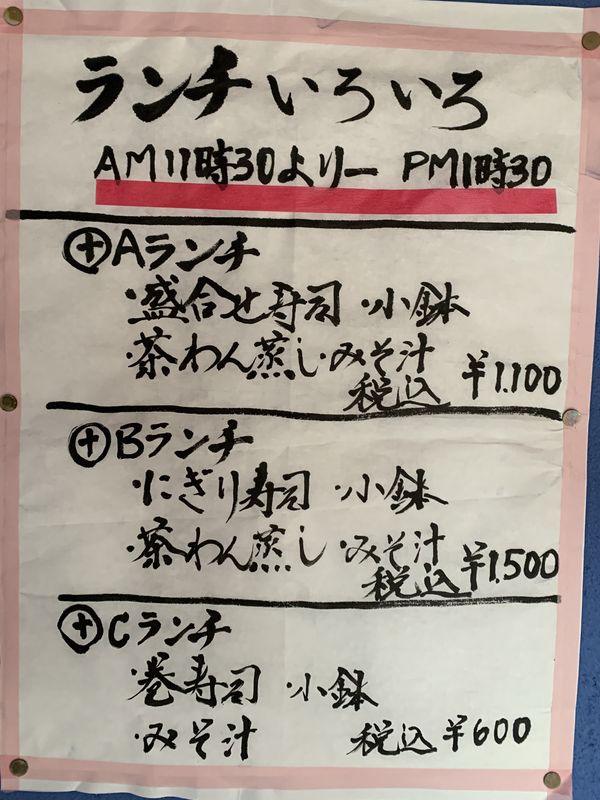 ランチいろいろ
AM11時30よりー PM1時30
⊕Aランチ
・盛合せ寿司 ・小鉢
・茶わん蒸し・みそ汁
税込 ¥1.100
⊕Bランチ
・にぎり寿司 ・小鉢
・茶わん蒸し・みそ汁
税込 ¥1.500
⊕Cランチ
・巻寿司 ・小鉢
・みそ汁 税込 ¥600